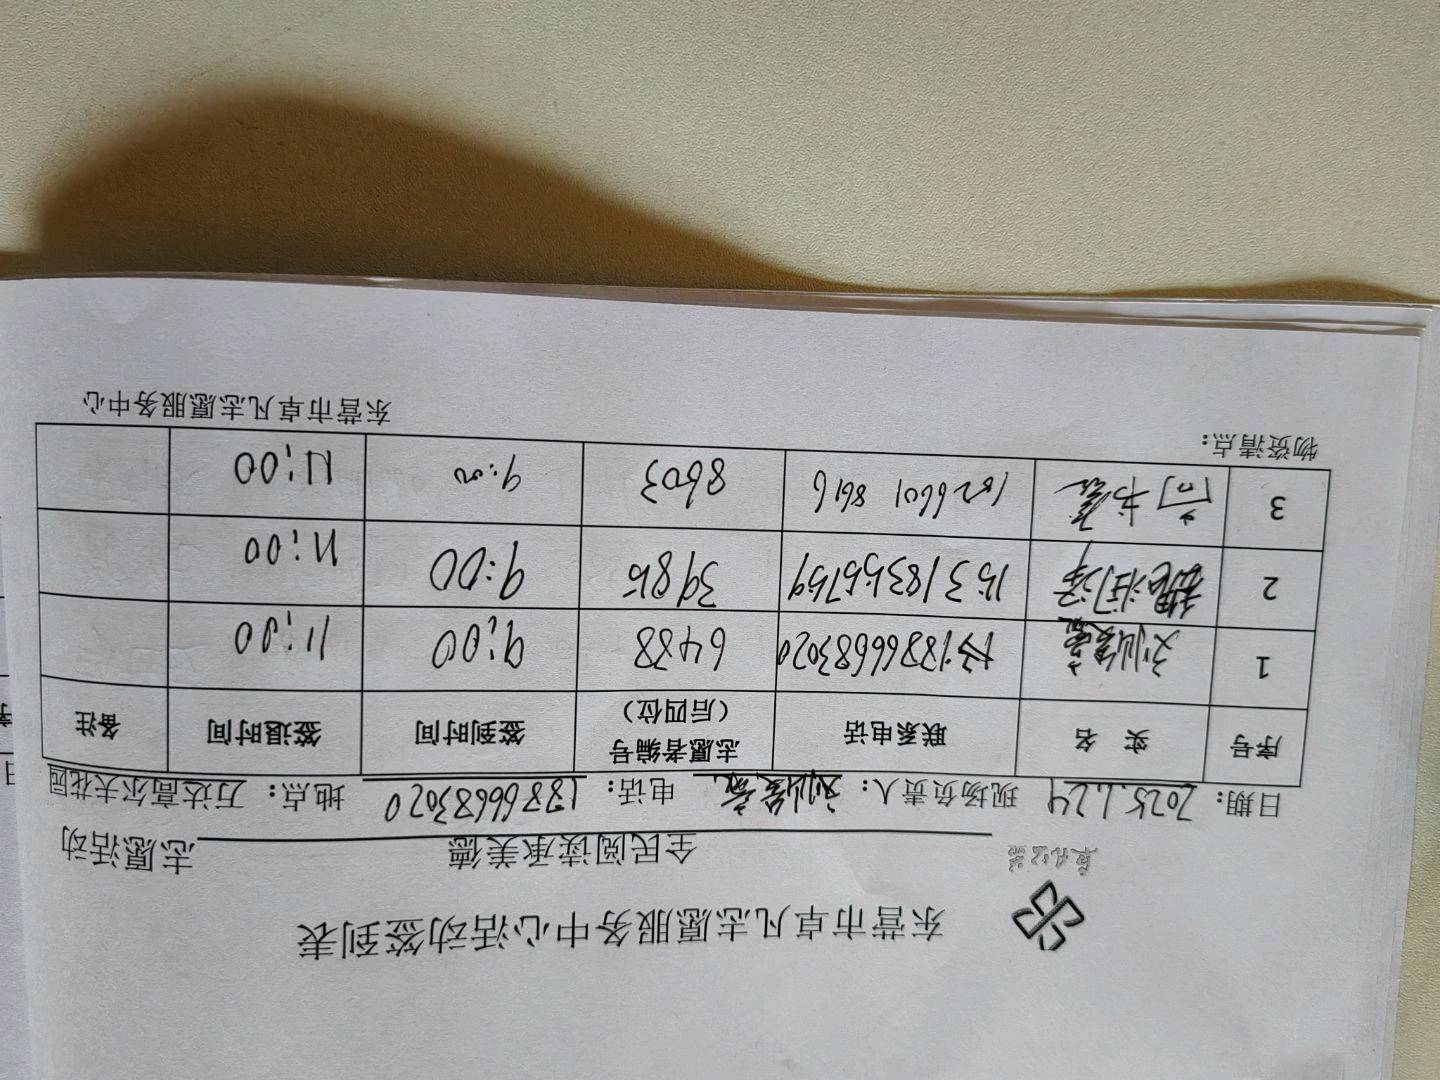 东营市卓凡志愿服务中心活动签到表
全民阅读承美德 志愿活动
日期：2025.1.24 现场负责人： 电话：13866683020 地点：万达高尔夫花园
序号 实 名 联系电话 志愿者编号（后四位） 签到时间 签退时间 备注
1 13866683020 6438 9:00 11:00
2 15318355759 3985 9:00 11:00
3 8603 9:00 11:00
物资清点：
东营市卓凡志愿服务中心